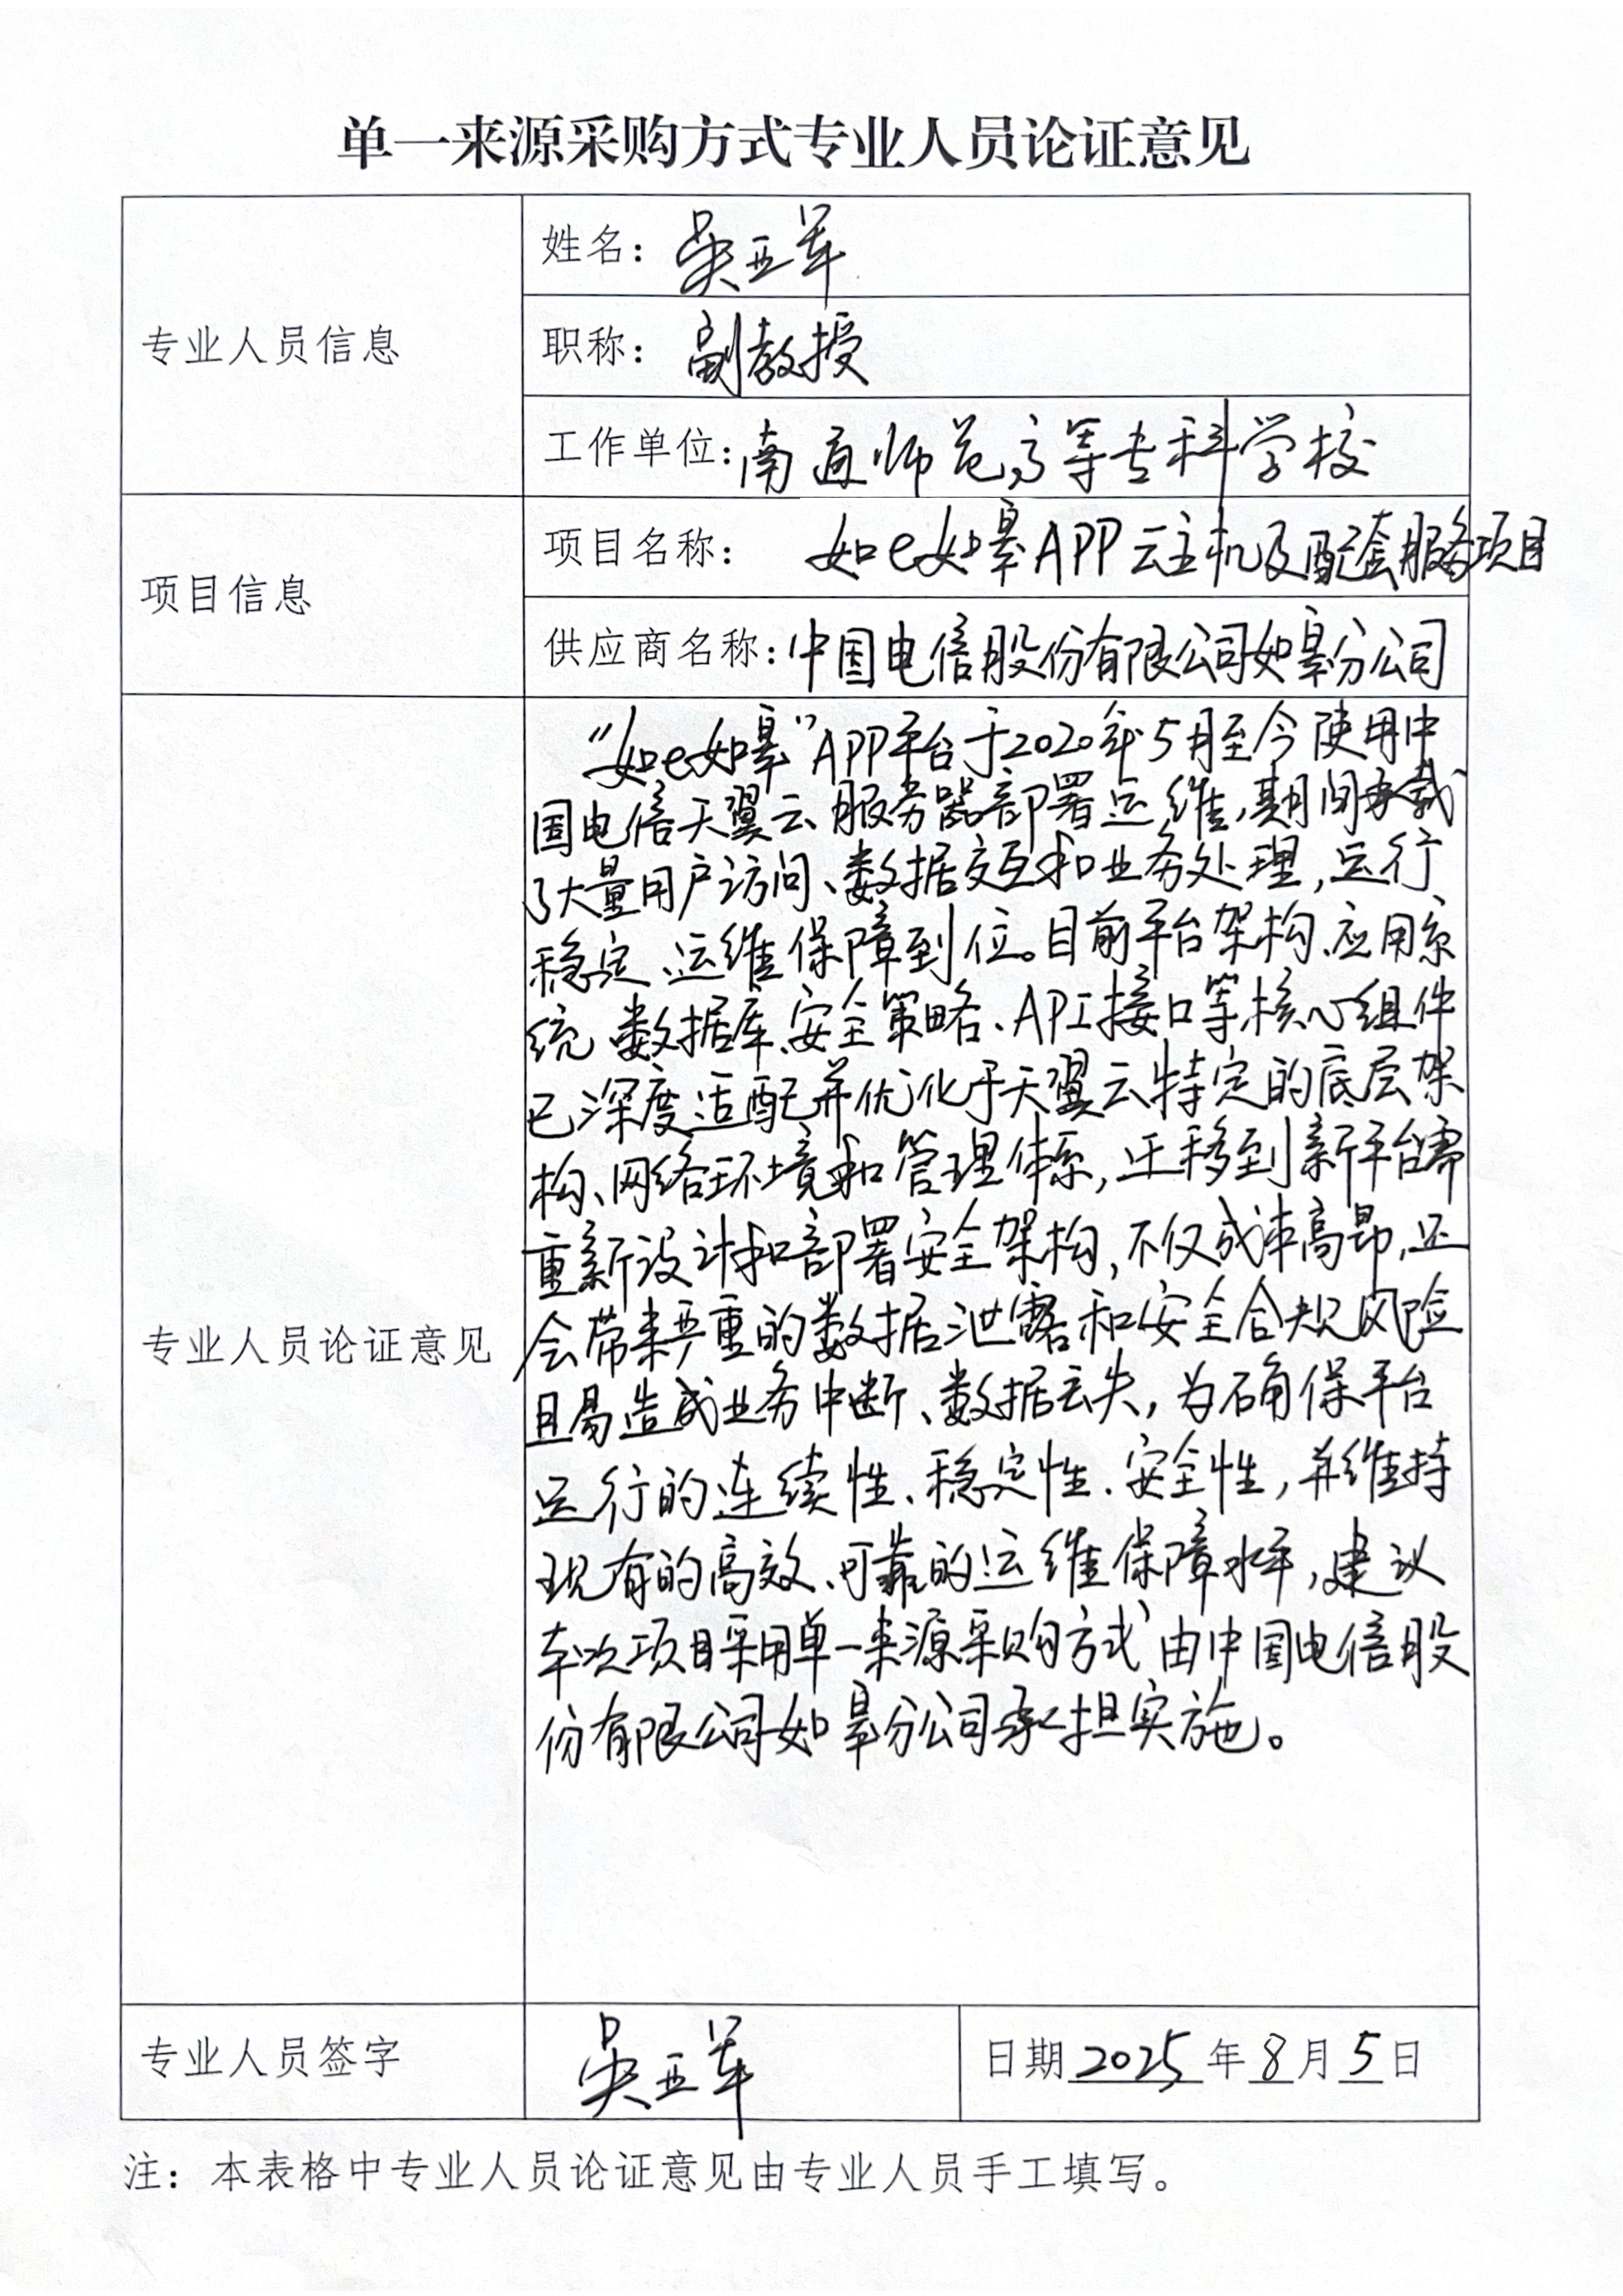 单一来源采购方式专业人员论证意见
专业人员信息
姓名：吴亚军
职称：副教授
工作单位：南通师范高等专科学校
项目信息
项目名称：如e如皋APP云主机及配套服务项目
供应商名称：中国电信股份有限公司如皋分公司
专业人员论证意见
“如e如皋”APP平台于2020年5月至今使用中
国电信天翼云服务器部署运维，期间承载
了大量用户访问、数据交互和业务处理，运行
稳定、运维保障到位。目前平台架构、应用系
统、数据库、安全策略、API接口等核心组件
已深度适配并优化于天翼云特定的底层架
构、网络环境和管理体系，迁移到新平台需
重新设计和部署安全架构，不仅成本高昂，还
会带来严重的数据泄露和安全合规风险
且易造成业务中断、数据丢失，为确保平台
运行的连续性、稳定性、安全性，并维持
现有的高效、可靠的运维保障水平，建议
本次项目采用单一来源采购方式由中国电信股
份有限公司如皋分公司承担实施。
专业人员签字
吴亚军
日期2025年8月5日
注：本表格中专业人员论证意见由专业人员手工填写。